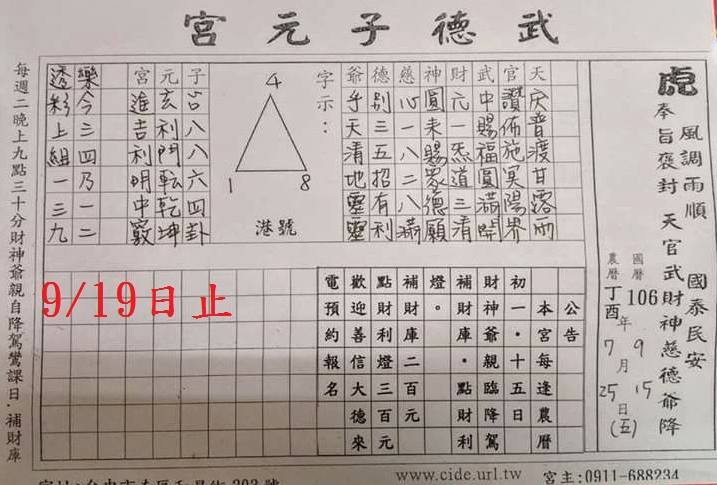 武德子元宮
虎
風調雨順 國泰民安
奉旨褒封 天官武財神慈德爺降
國曆 106年9月15日
農曆 丁酉年7月25日(五)
天庆普渡甘露雨
官讚佈施冥陽界
武中賜福圓滿開
財元一炁道三清
神圓來賜眾德願
慈心一八二八滿
德别三五招有利
爺乎天清地靈靈
字示：
4
1 8
港號
子占八八六四卦
元玄利門転乾坤
宮進吉利明中竅
樂今三四乃一二
透彩上組一三九
公告
本宮每逢農曆
初一·十五日
財神爺親臨降駕
補財庫·點財利
燈。
補財庫二百元
點財利燈三百元
歡迎善信大德來
電預約報名
9/19日止
每週二晚上九點三十分財神爺親自降駕鸞課日·補財庫
www.cide.url.tw
宮主:0911-688234